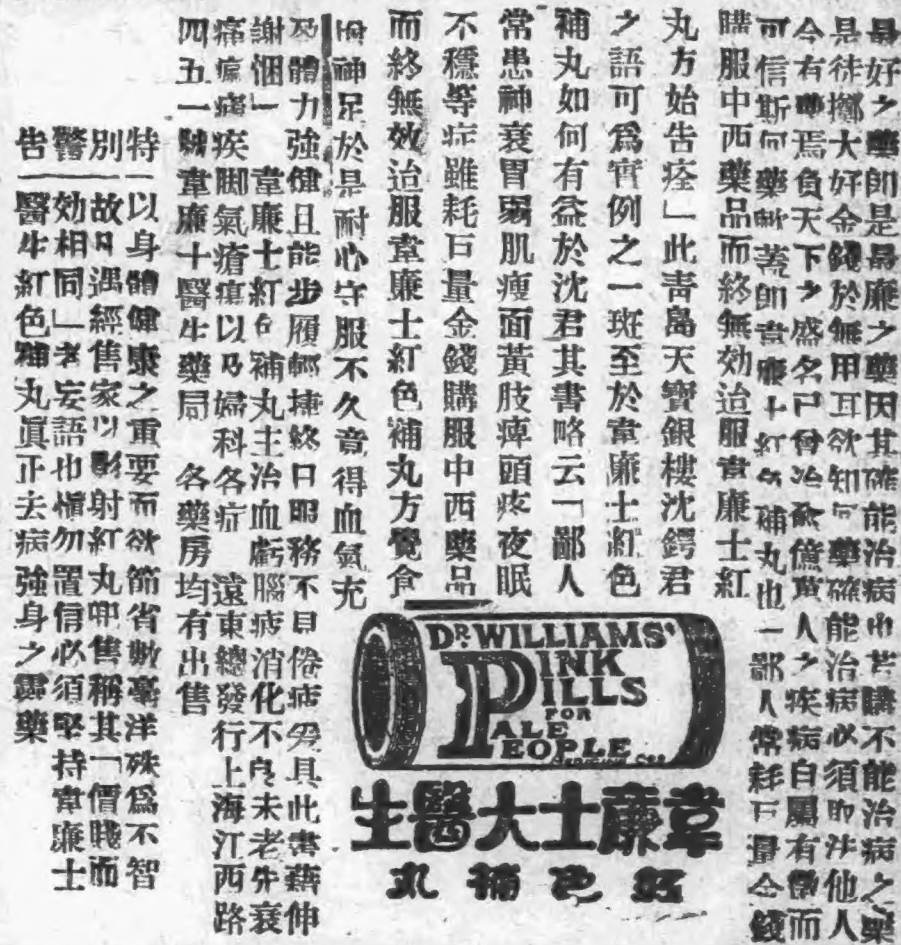 最好之藥卽是最廉之藥因其確能治病也若購不能治病之藥
是徒擲大好金錢於無用耳欲知何藥確能治病必須取決他人
今有藥焉負天下之盛名已曾治愈億萬人之疾病自屬有徵而
可信斯何藥歟蓋卽韋廉士紅色補丸也「鄙人常耗巨量金錢
購服中西藥品而終無効迨服韋廉士紅
丸方始告痊」此靑島天寶銀樓沈鍔君
之語可爲實例之一斑至於韋廉士紅色
補丸如何有益於沈君其書略云「鄙人
常患神衰胃弱肌瘦面黃肢痺頭疼夜眠
不穩等症雖耗巨量金錢購服中西藥品
而終無效迨服韋廉士紅色補丸方覺食
神足於是耐心守服不久竟得血氣充
體力強健且能步履輕捷終日服務不見倦疲爰具此書藉伸
謝悃」 韋廉士紅色補丸主治血虧腦疲消化不良未老先衰
痛疾脚氣瘡瘍以及婦科各症 遠東總發行上海江西路
四五一號韋廉士醫生藥局 各藥房均有出售
特別警告
以身體健康之重要而欲節省數毫洋殊爲不智
故凡遇經售家以影射紅丸兜售稱其「價賤而
効相同」者妄語也愼勿置信必須堅持韋廉士
醫生紅色補丸眞正去病強身之靈藥
DR. WILLIAMS'
PINK
PILLS
FOR
PALE
PEOPLE
韋廉士大醫生
紅色補丸